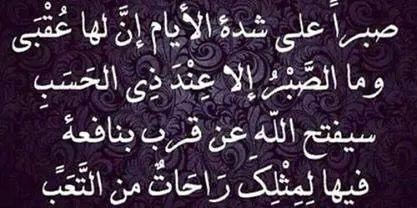 صبراً على شدة الأيام إنَّ لها عُقْبَى
وما الصَّبْرُ إلا عِنْدَ ذِى الحَسَبِ
سيفتح اللّه عن قرب بنافعة
فيها لِمِثْلِكَ رَاحَاتٌ من التَّعَبِ